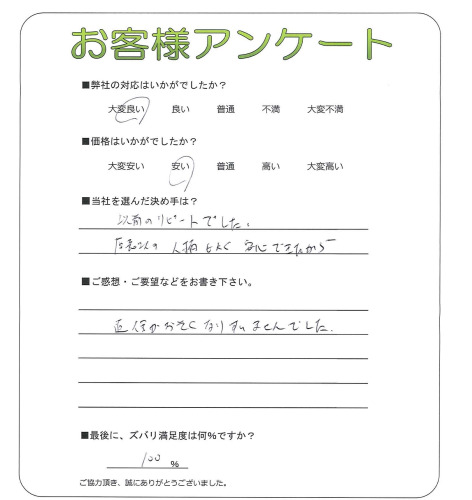 お客様アンケート
■弊社の対応はいかがでしたか？
大変良い 良い 普通 不満 大変不満
■価格はいかがでしたか？
大変安い 安い 普通 高い 大変高い
■当社を選んだ決め手は？
以前のリピートでした。
人柄もよく安心できたから
■ご感想・ご要望などをお書き下さい。
返信がおそくなりすいませんでした。
■最後に、ズバリ満足度は何％ですか？
100 %
ご協力頂き、誠にありがとうございました。